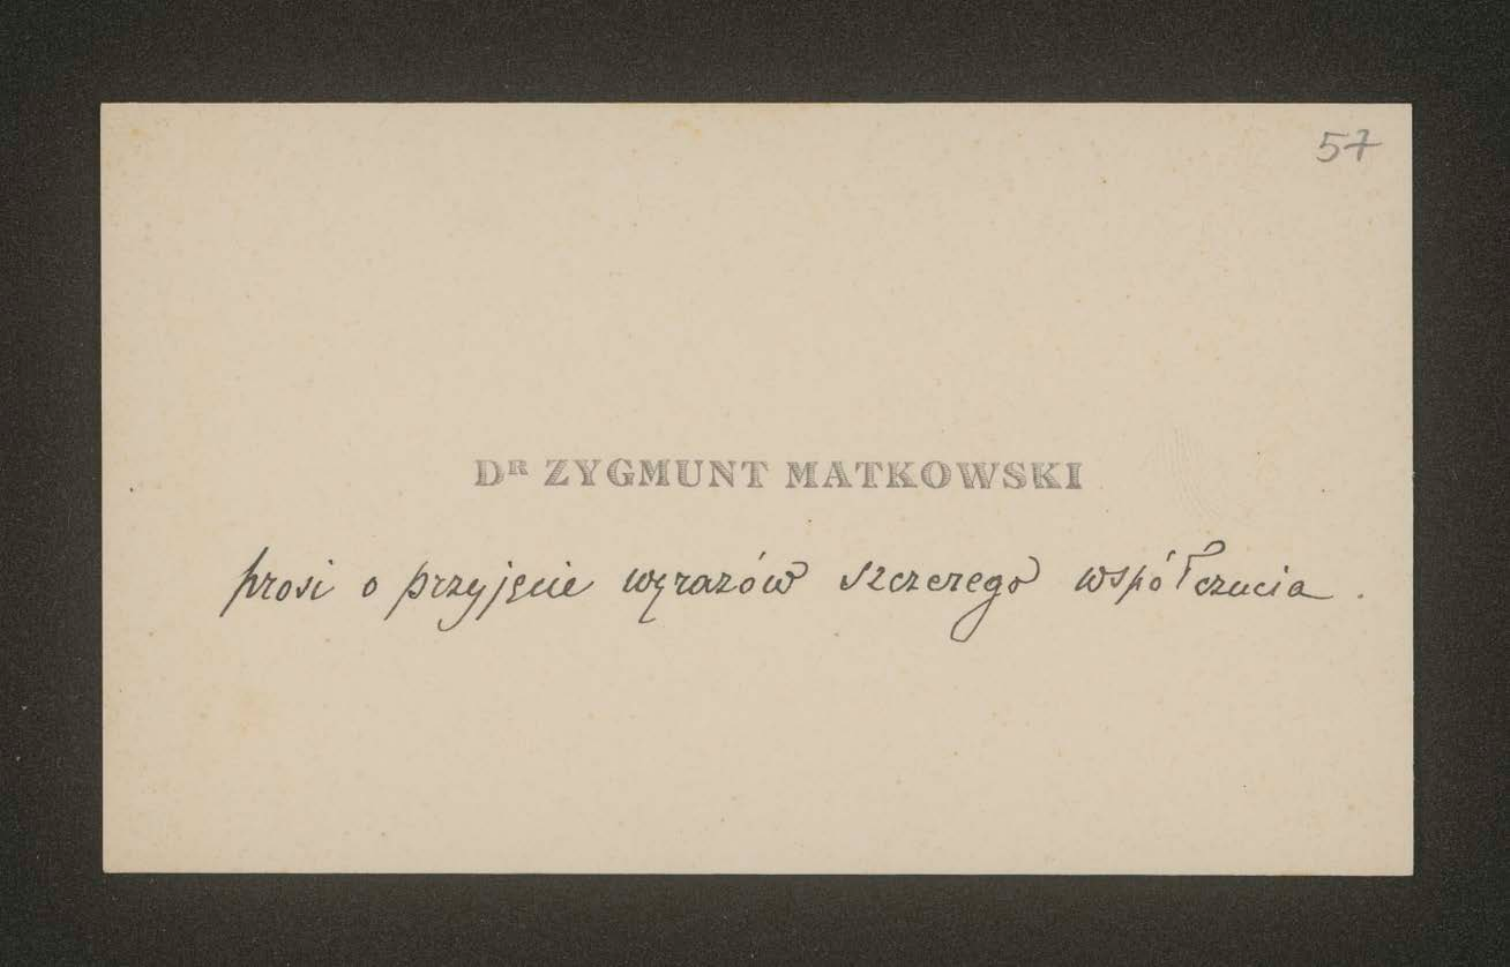 57
DR ZYGMUNT MATKOWSKI
prosi o przyjęcie wyrazów szczerego współczucia .